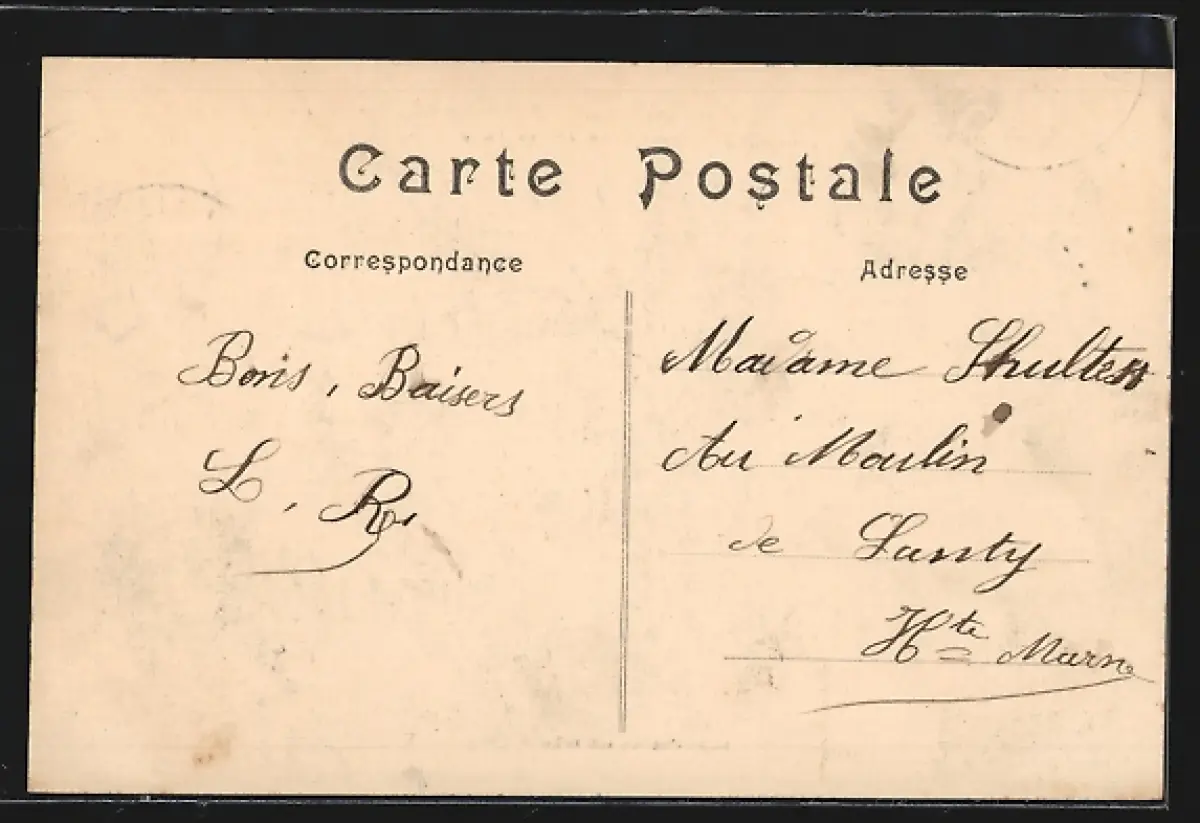 Carte Postale
Correspondance
Bons, Baisers
L, R.
Adresse
Madame Shultess
Au Moulin
de Lanty
Hte Marne